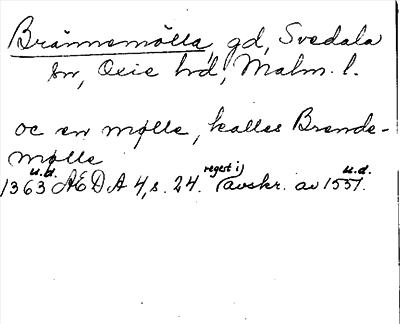 Brännemölla, gd, Svedala
sn, Oxie hd, Malm. l.
oc en mølle, kalles Brende-
mølle
u.d. regest i) u.d.
1363 AEDA 4, s. 24. (avskr. av 1551.